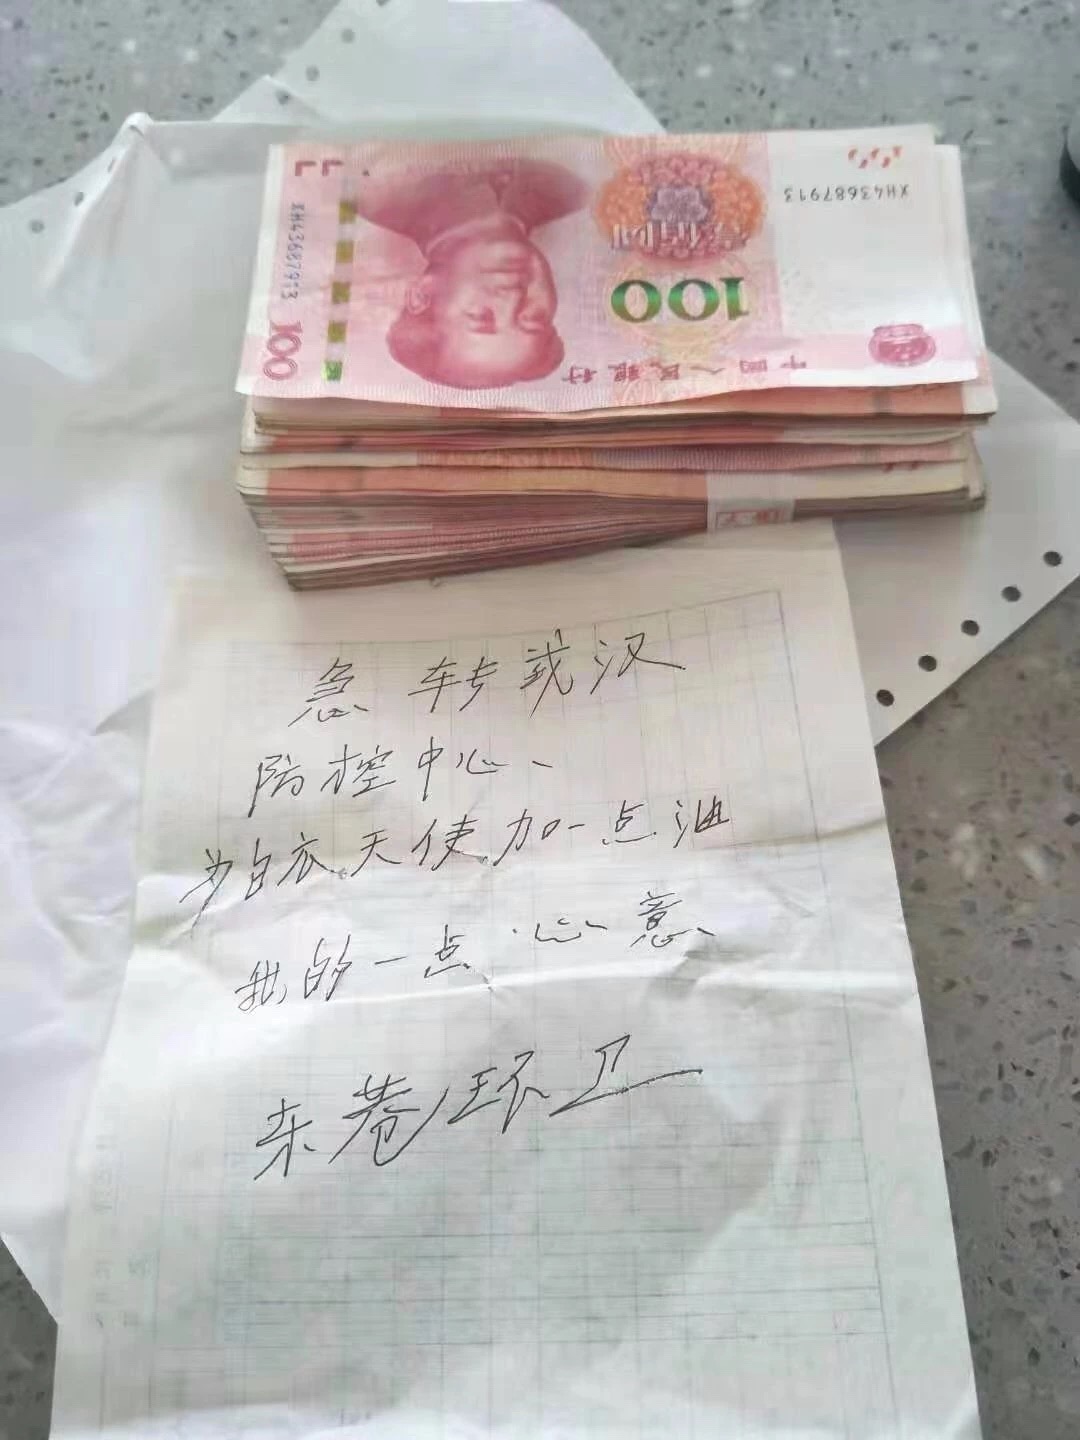 中国人民银行
100
壹佰圆
XH43687913
XH43687913
100
急转武汉
防控中心、
为白衣天使加一点油
我的一点心意、
东巷环卫